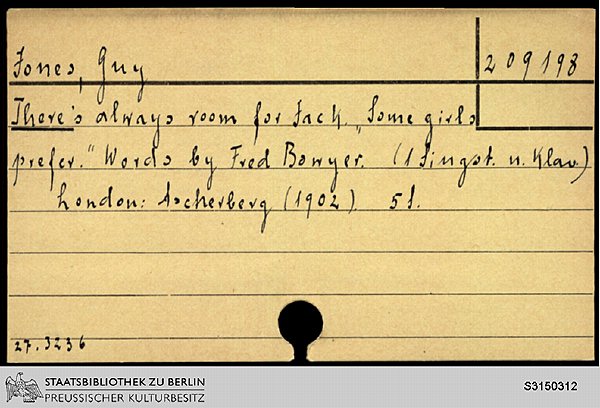 Jones, Guy
209198
There's always room for Jack. „Some girls
prefer." Words by Fred Bowyer. (1 Singst. u. Klav.)
London: Ascherberg (1902). 5 S.
27.3236
STAATSBIBLIOTHEK ZU BERLIN
PREUSSISCHER KULTURBESITZ
S3150312